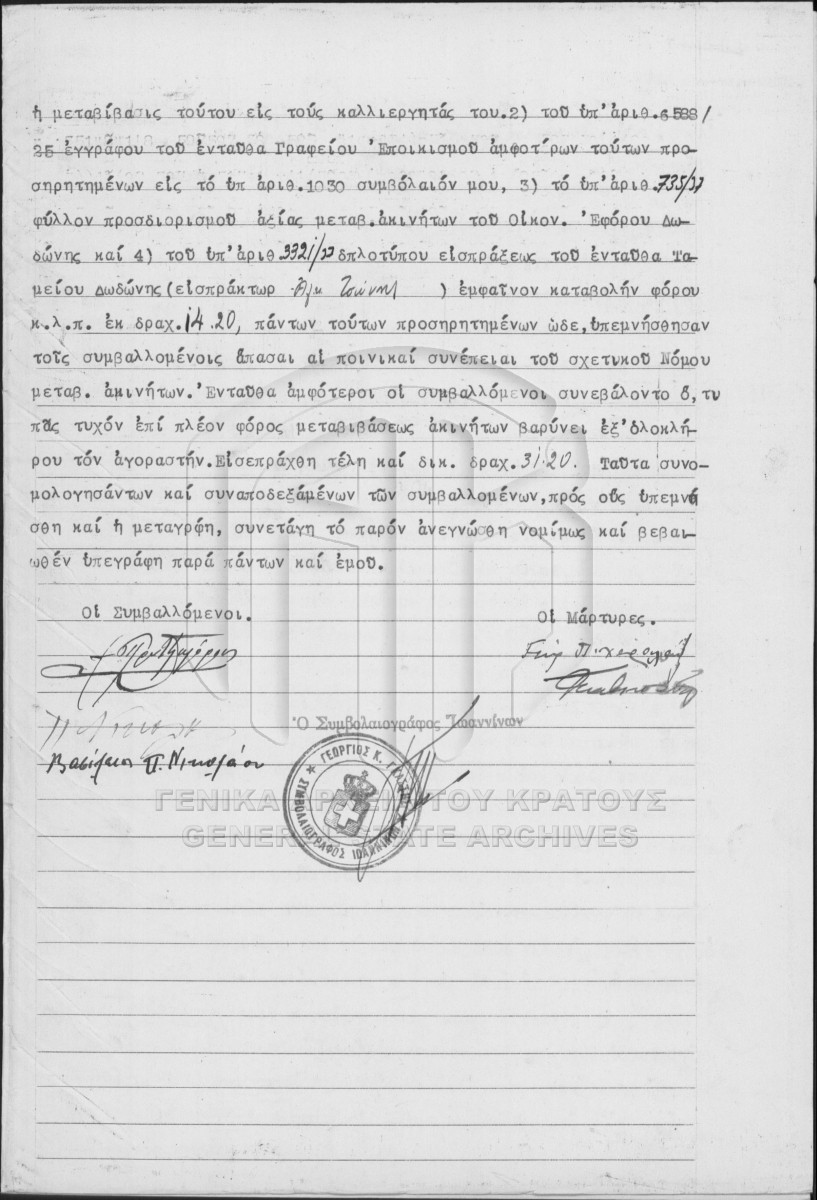 ἡ μεταβίβασις τούτου εἰς τούς καλλιεργητάς του.2) τοῦ ὑπ' ἀριθ.6588/
25 ἐγγράφου τοῦ ἐνταῦθα Γραφείου Ἐποικισμοῦ ἀμφοτέρων τούτων προ-
σηρητημένων εἰς τό ὑπ ἀριθ.1030 συμβόλαιόν μου, 3) τό ὑπ' ἀριθ.735/37
φύλλον προσδιορισμοῦ ἀξίας μεταβ.ἀκινήτων τοῦ Οἰκον. Ἐφόρου Δω-
δώνης καί 4) τοῦ ὑπ' ἀριθ 3321/37 δπλοτύπου εἰσπράξεως τοῦ ἐνταῦθα Τα-
μείου Δωδώνης(εἰσπράκτωρ ) ἐμφαῖνον καταβολήν φόρου
κ.λ.π. ἐκ δραχ.14.20, πάντων τούτων προσηρητημένων ὧδε,ὑπεμνήσθησαν
τοῖς συμβαλλομένοις ἅπασαι αἱ ποινικαί συνέπειαι τοῦ σχετικοῦ Νόμου
μεταβ. ἀκινήτων.Ἐνταῦθα ἀμφότεροι οἱ συμβαλλόμενοι συνεβάλοντο ὅ,τι
πᾶς τυχόν ἐπί πλέον φόρος μεταβιβάσεως ἀκινήτων βαρύνει ἐξ' ὁλοκλή-
ρου τόν ἀγοραστήν.Εἰσεπράχθη τέλη καί δικ. δραχ.31.20. Ταῦτα συνο-
μολογησάντων καί συναποδεξαμένων τῶν συμβαλλομένων,πρός οὕς ὑπεμνή
σθη καί ἡ μεταγρφη, συνετάγη τό παρόν ἀνεγνώσθη νομίμως καί βεβαι-
ωθέν ὑπεγράφη παρά πάντων καί ἐμοῦ.
Οἱ Συμβαλλόμενοι. Οἱ Μάρτυρες.
Ὁ Συμβολαιογράφος Ἰωαννίνων
Βασίλειος Π. Νικολάου
ΓΕΩΡΓΙΟΣ Κ.
ΣΥΜΒΟΛΑΙΟΓΡΑΦΟΣ ΙΩΑΝΝΙΝΩΝ
ΓΕΝΙΚΑ ΑΡΧΕΙΑ ΤΟΥ ΚΡΑΤΟΥΣ
GENERAL STATE ARCHIVES